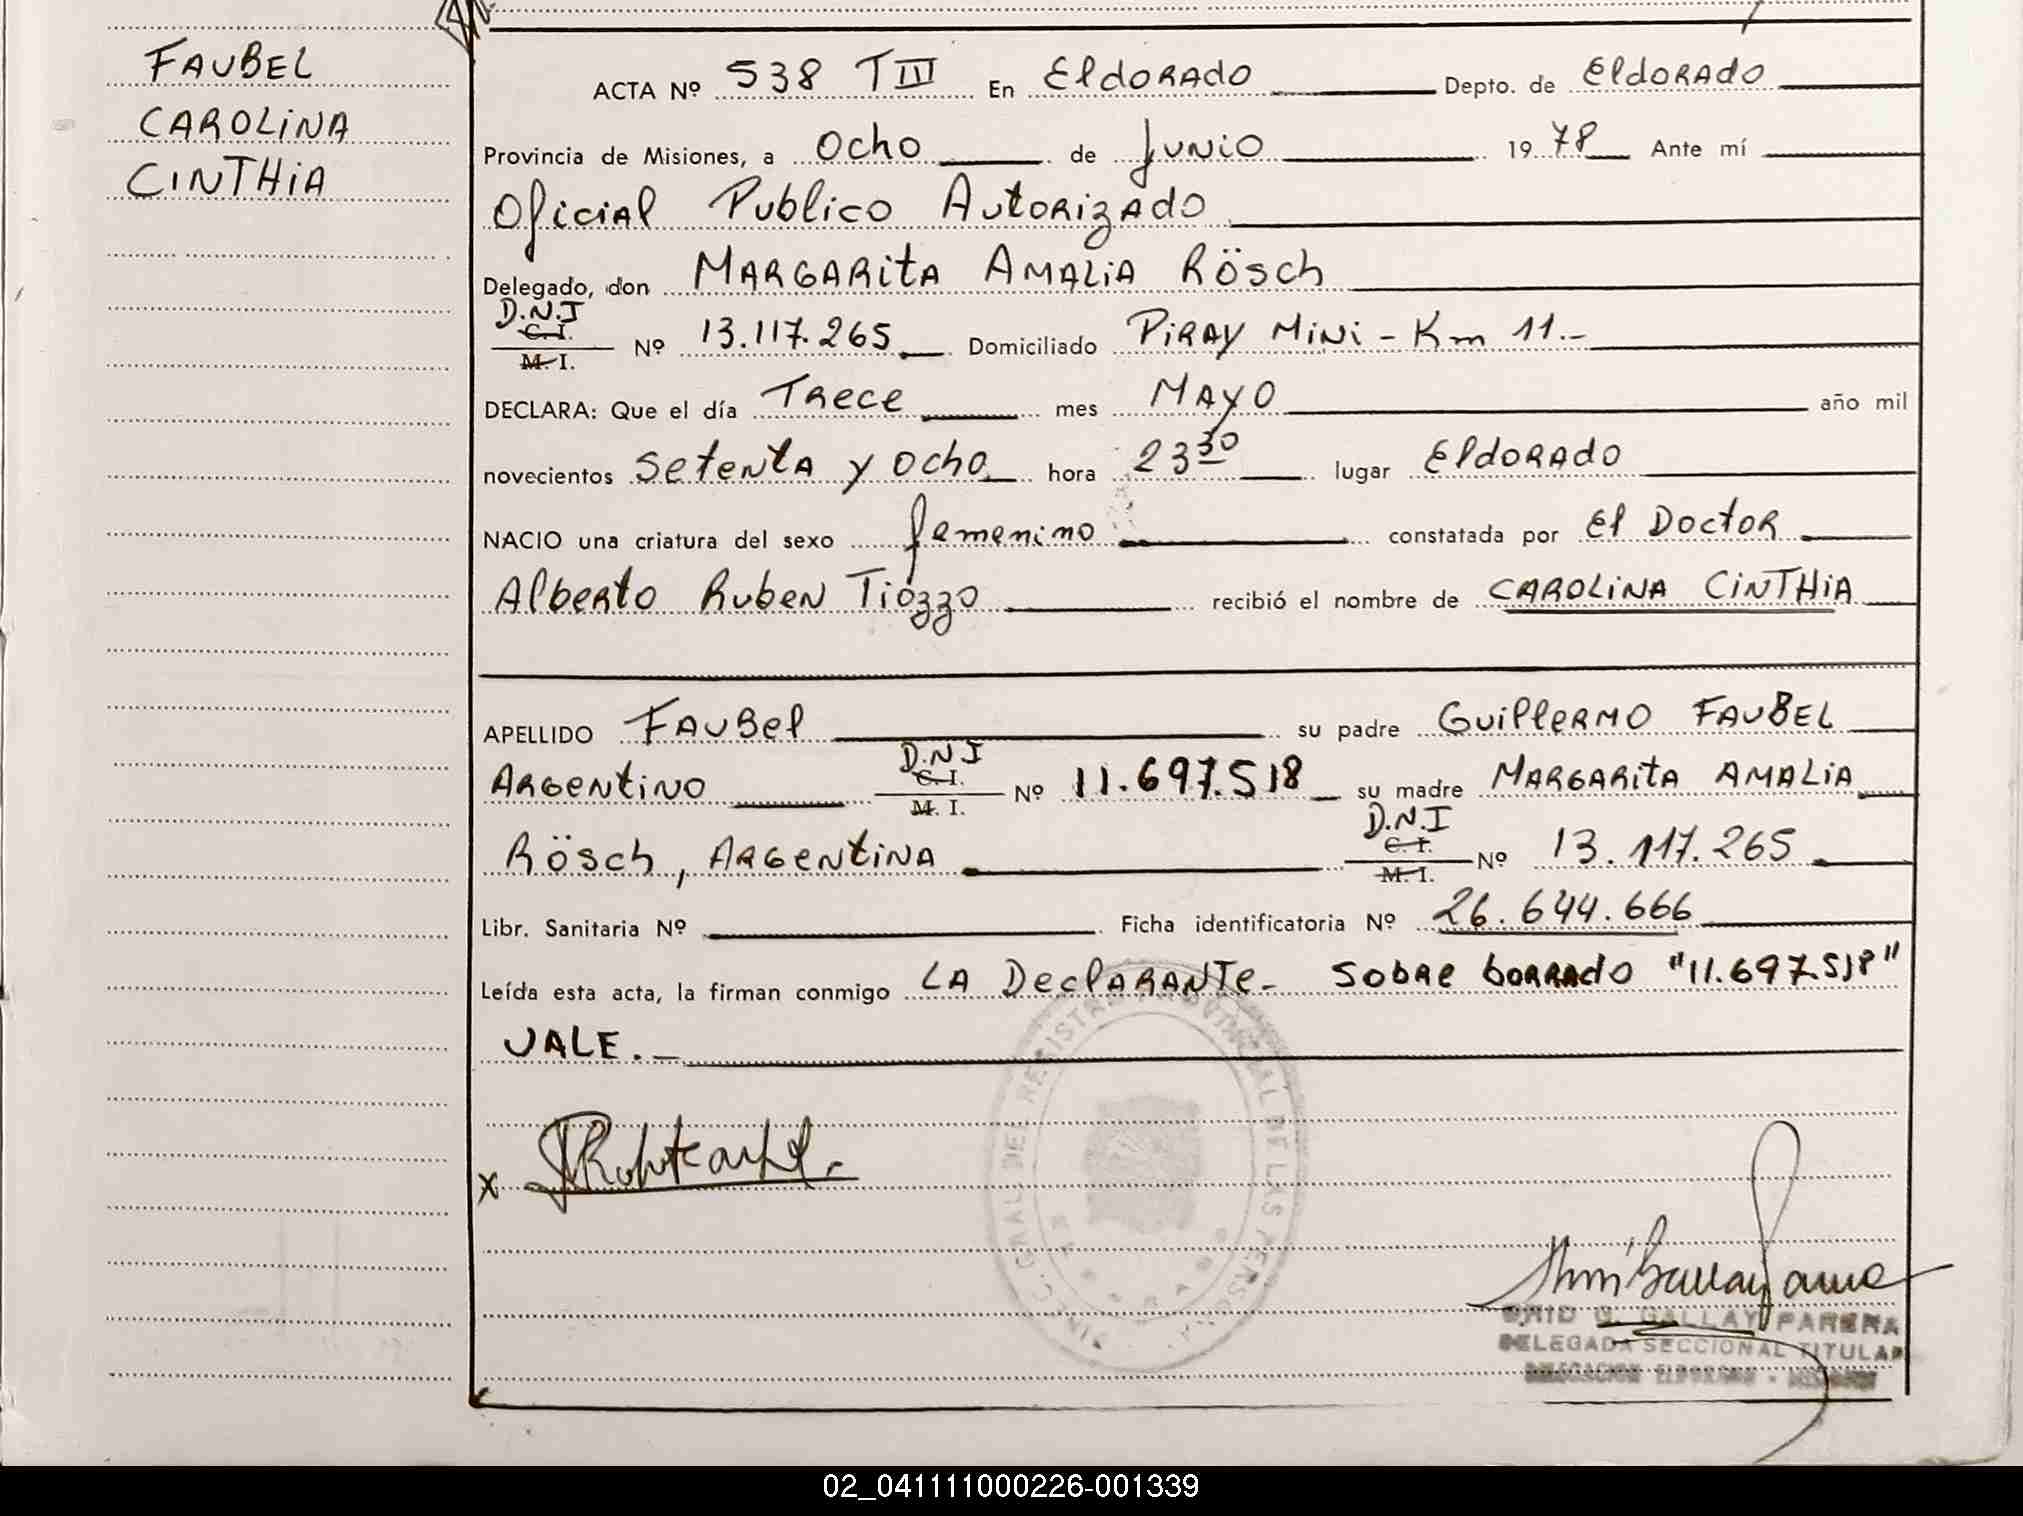 FAUBEL
CAROLINA
CINTHIA
ACTA Nº 538 TIII En ElDORADO Depto. de ElDORADO
Provincia de Misiones, a Ocho de Junio 1978 Ante mí
Oficial Publico Autorizado
Delegado, don MARGARITA AMALIA Rösch
D.N.I
C. I.
M. I.
Nº 13.117.265 Domiciliado PIRAY MINI - Km 11.-
DECLARA: Que el día Trece mes MAYO año mil
novecientos Setenta y Ocho hora 23 30 lugar ElDORADO
NACIO una criatura del sexo femenino constatada por El Doctor
Alberto Ruben Tiozzo recibió el nombre de CAROLINA CINTHIA
APELLIDO FAUBEl su padre GuillERMO FAUBEL
ARGENtINO
D.N.I
C. I.
M. I.
Nº 11.697.518 su madre MARGARITA AMALIA
Rösch, ARGENtINA
D.N.I
C. I.
M. I.
Nº 13.117.265
Libr. Sanitaria Nº Ficha identificatoria Nº 26.644.666
Leída esta acta, la firman conmigo LA DeclARANTe- Sobre borrado "11.697.518"
VALE.-
x
GALLAY PARERA
DELEGADA SECCIONAL TITULAR
DELEGACION ELDORADO - MISIONES
02_041111000226-001339